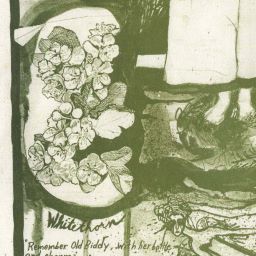 Whitethorn
"Remember Old Biddy, with her bottle
and charms"